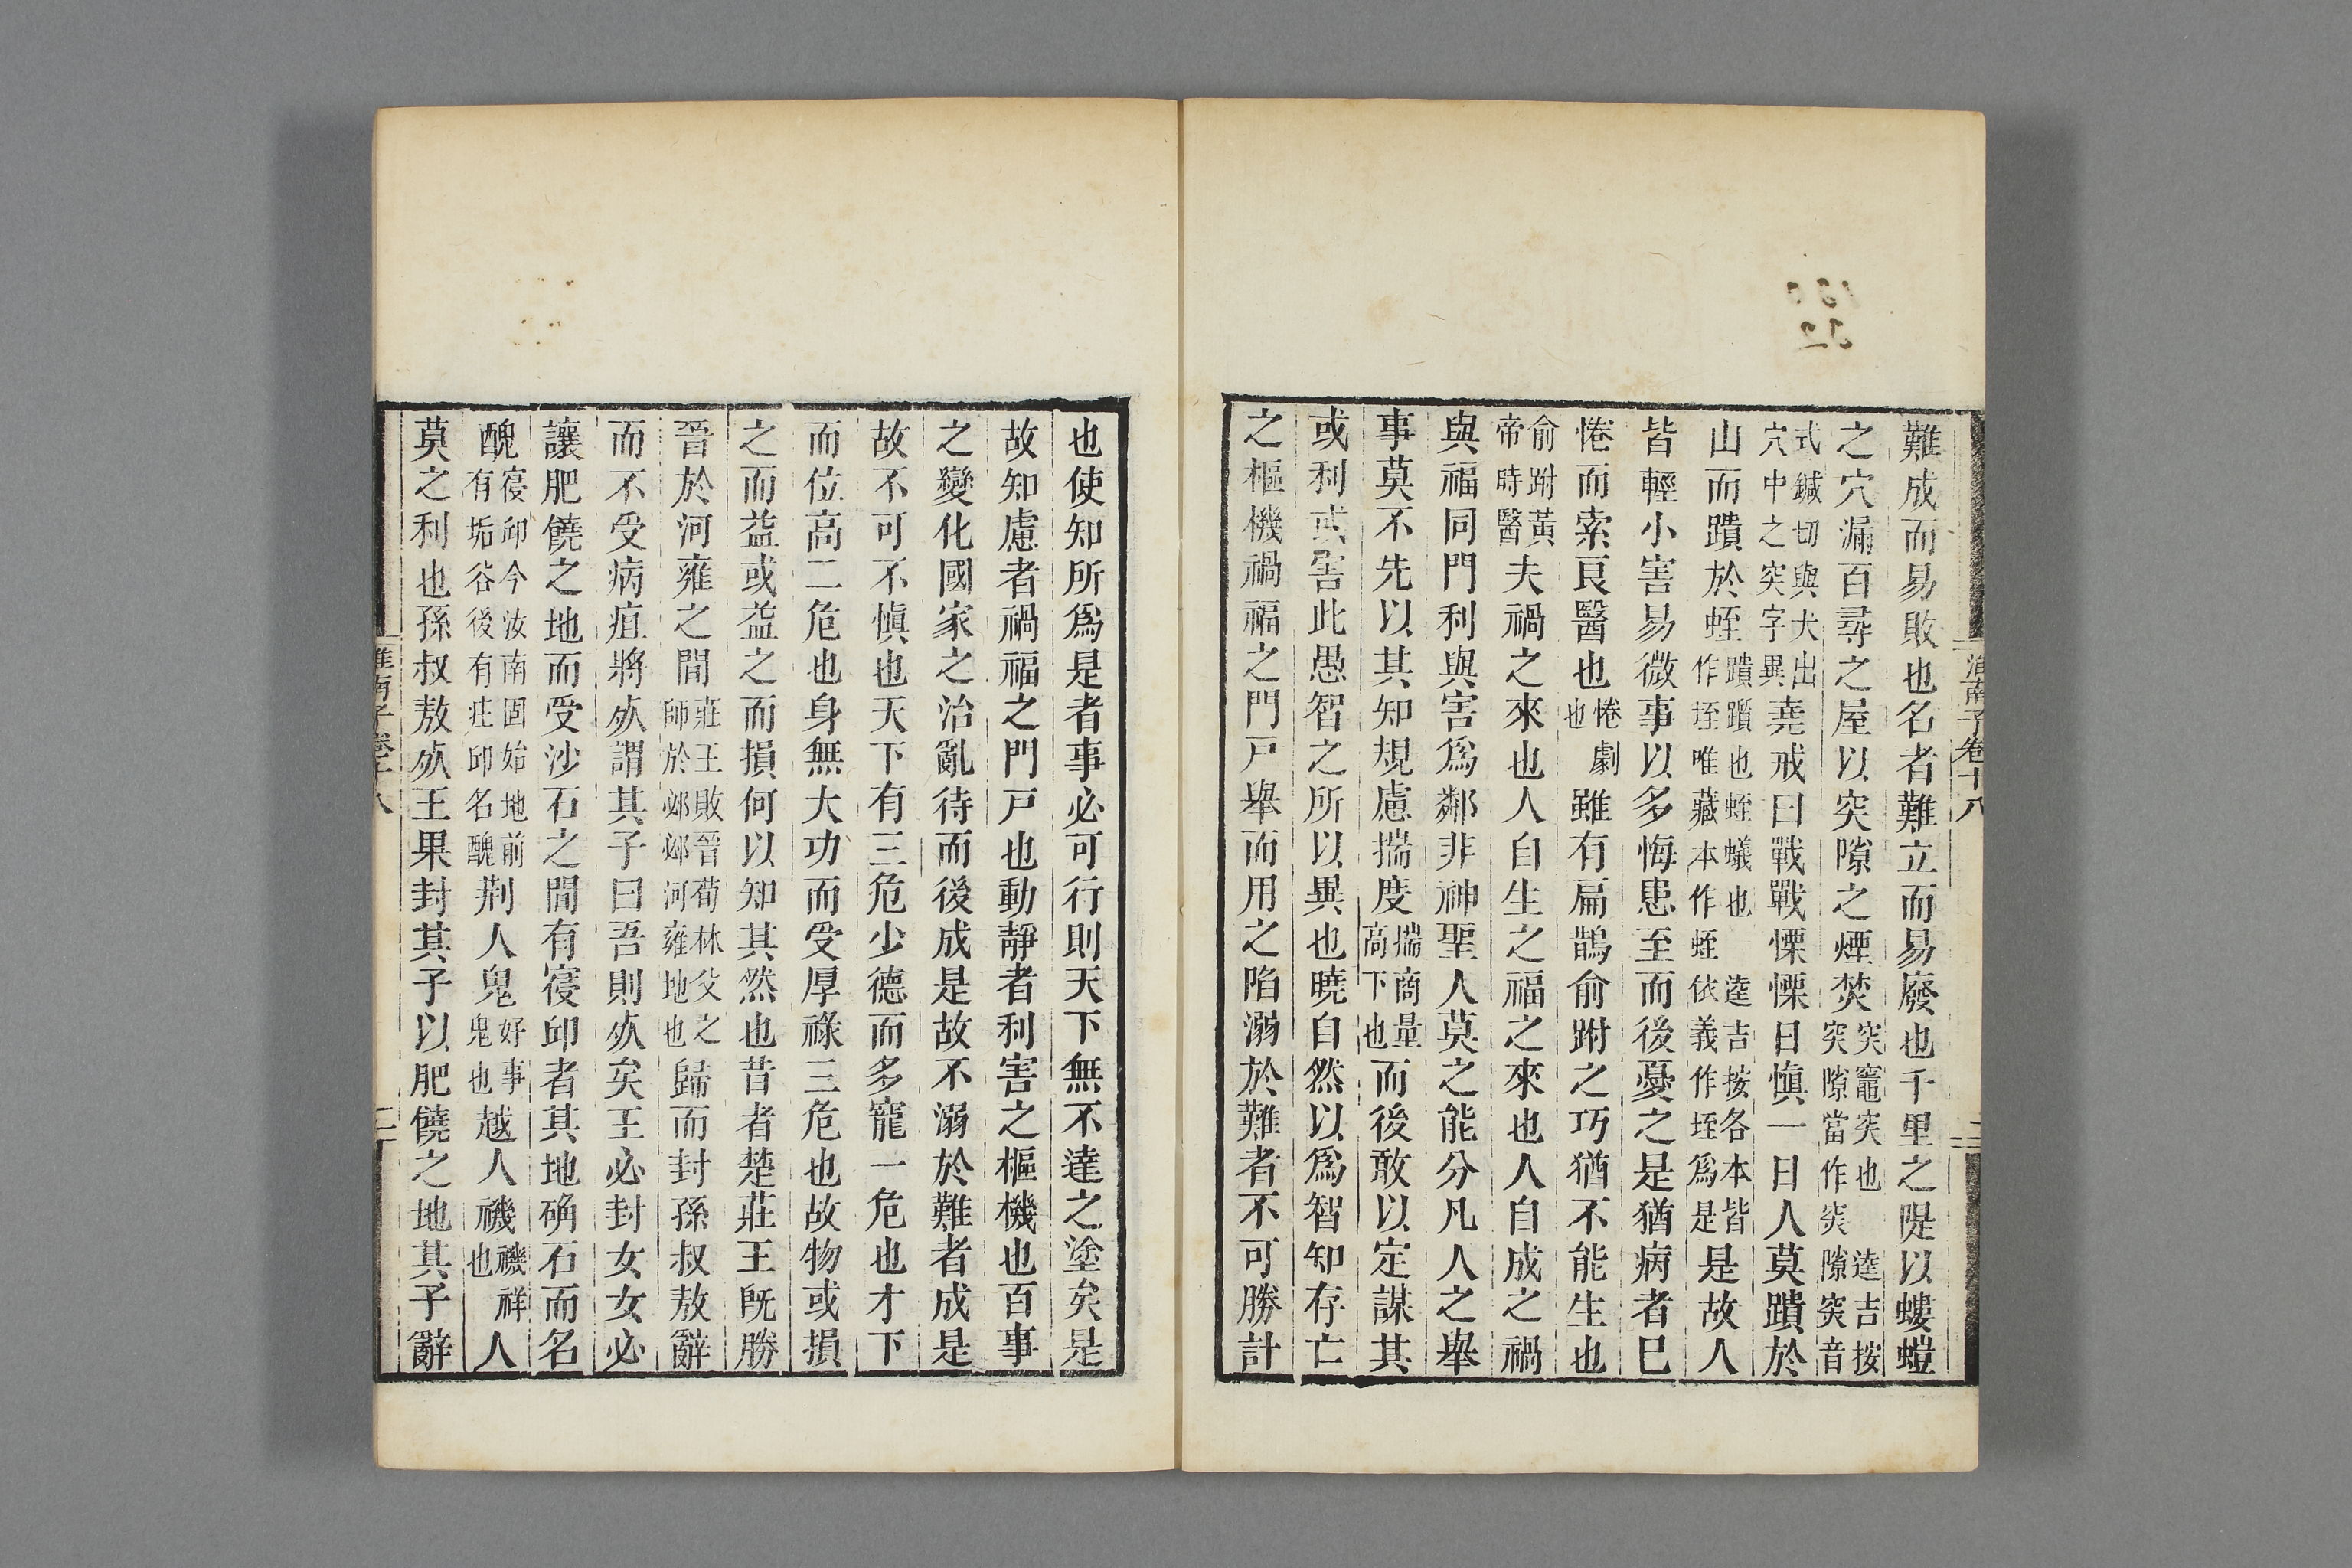 難成而易敗也名者難立而易廢也千里之隄以螻螘
之穴漏百尋之屋以突隙之煙焚突竈突也 逵吉按突隙當作突隙突音
式鍼切與犬出穴中之突字異堯戒曰戰戰慄慄日愼一日人莫蹪於
山而蹪於蛭蹪躓也蛭蟻也 逵吉按各本皆作垤唯藏本作蛭依義作垤爲是是故人
皆輕小害易微事以多悔患至而後憂之是猶病者巳
惓而索良醫也惓劇也雖有扁鵲俞跗之巧猶不能生也
俞跗黃帝時醫夫禍之來也人自生之福之來也人自成之禍
與福同門利與害爲鄰非神聖人莫之能分凡人之舉
事莫不先以其知規慮揣度揣商量高下也而後敢以定謀其
或利或害此愚智之所以異也曉自然以爲智知存亡
之樞機禍福之門戸舉而用之陷溺於難者不可勝計
也使知所爲是者事必可行則天下無不達之塗矣是
故知慮者禍福之門戸也動靜者利害之樞機也百事
之變化國家之治亂待而後成是故不溺於難者成是
故不可不愼也天下有三危少德而多寵一危也才下
而位高二危也身無大功而受厚祿三危也故物或損
之而益或益之而損何以知其然也昔者楚莊王旣勝
晉於河雍之間莊王敗晉荀林父之師於邲邲河雍地也歸而封孫叔敖辭
而不受病疽將死謂其子曰吾則死矣王必封女女必
讓肥饒之地而受沙石之間有寑邱者其地确石而名
醜寑邱今汝南固始地前有垢谷後有庄邱名醜荆人鬼好事鬼也越人禨禨祥也人
莫之利也孫叔敖死王果封其子以肥饒之地其子辭
淮南子卷十八
二